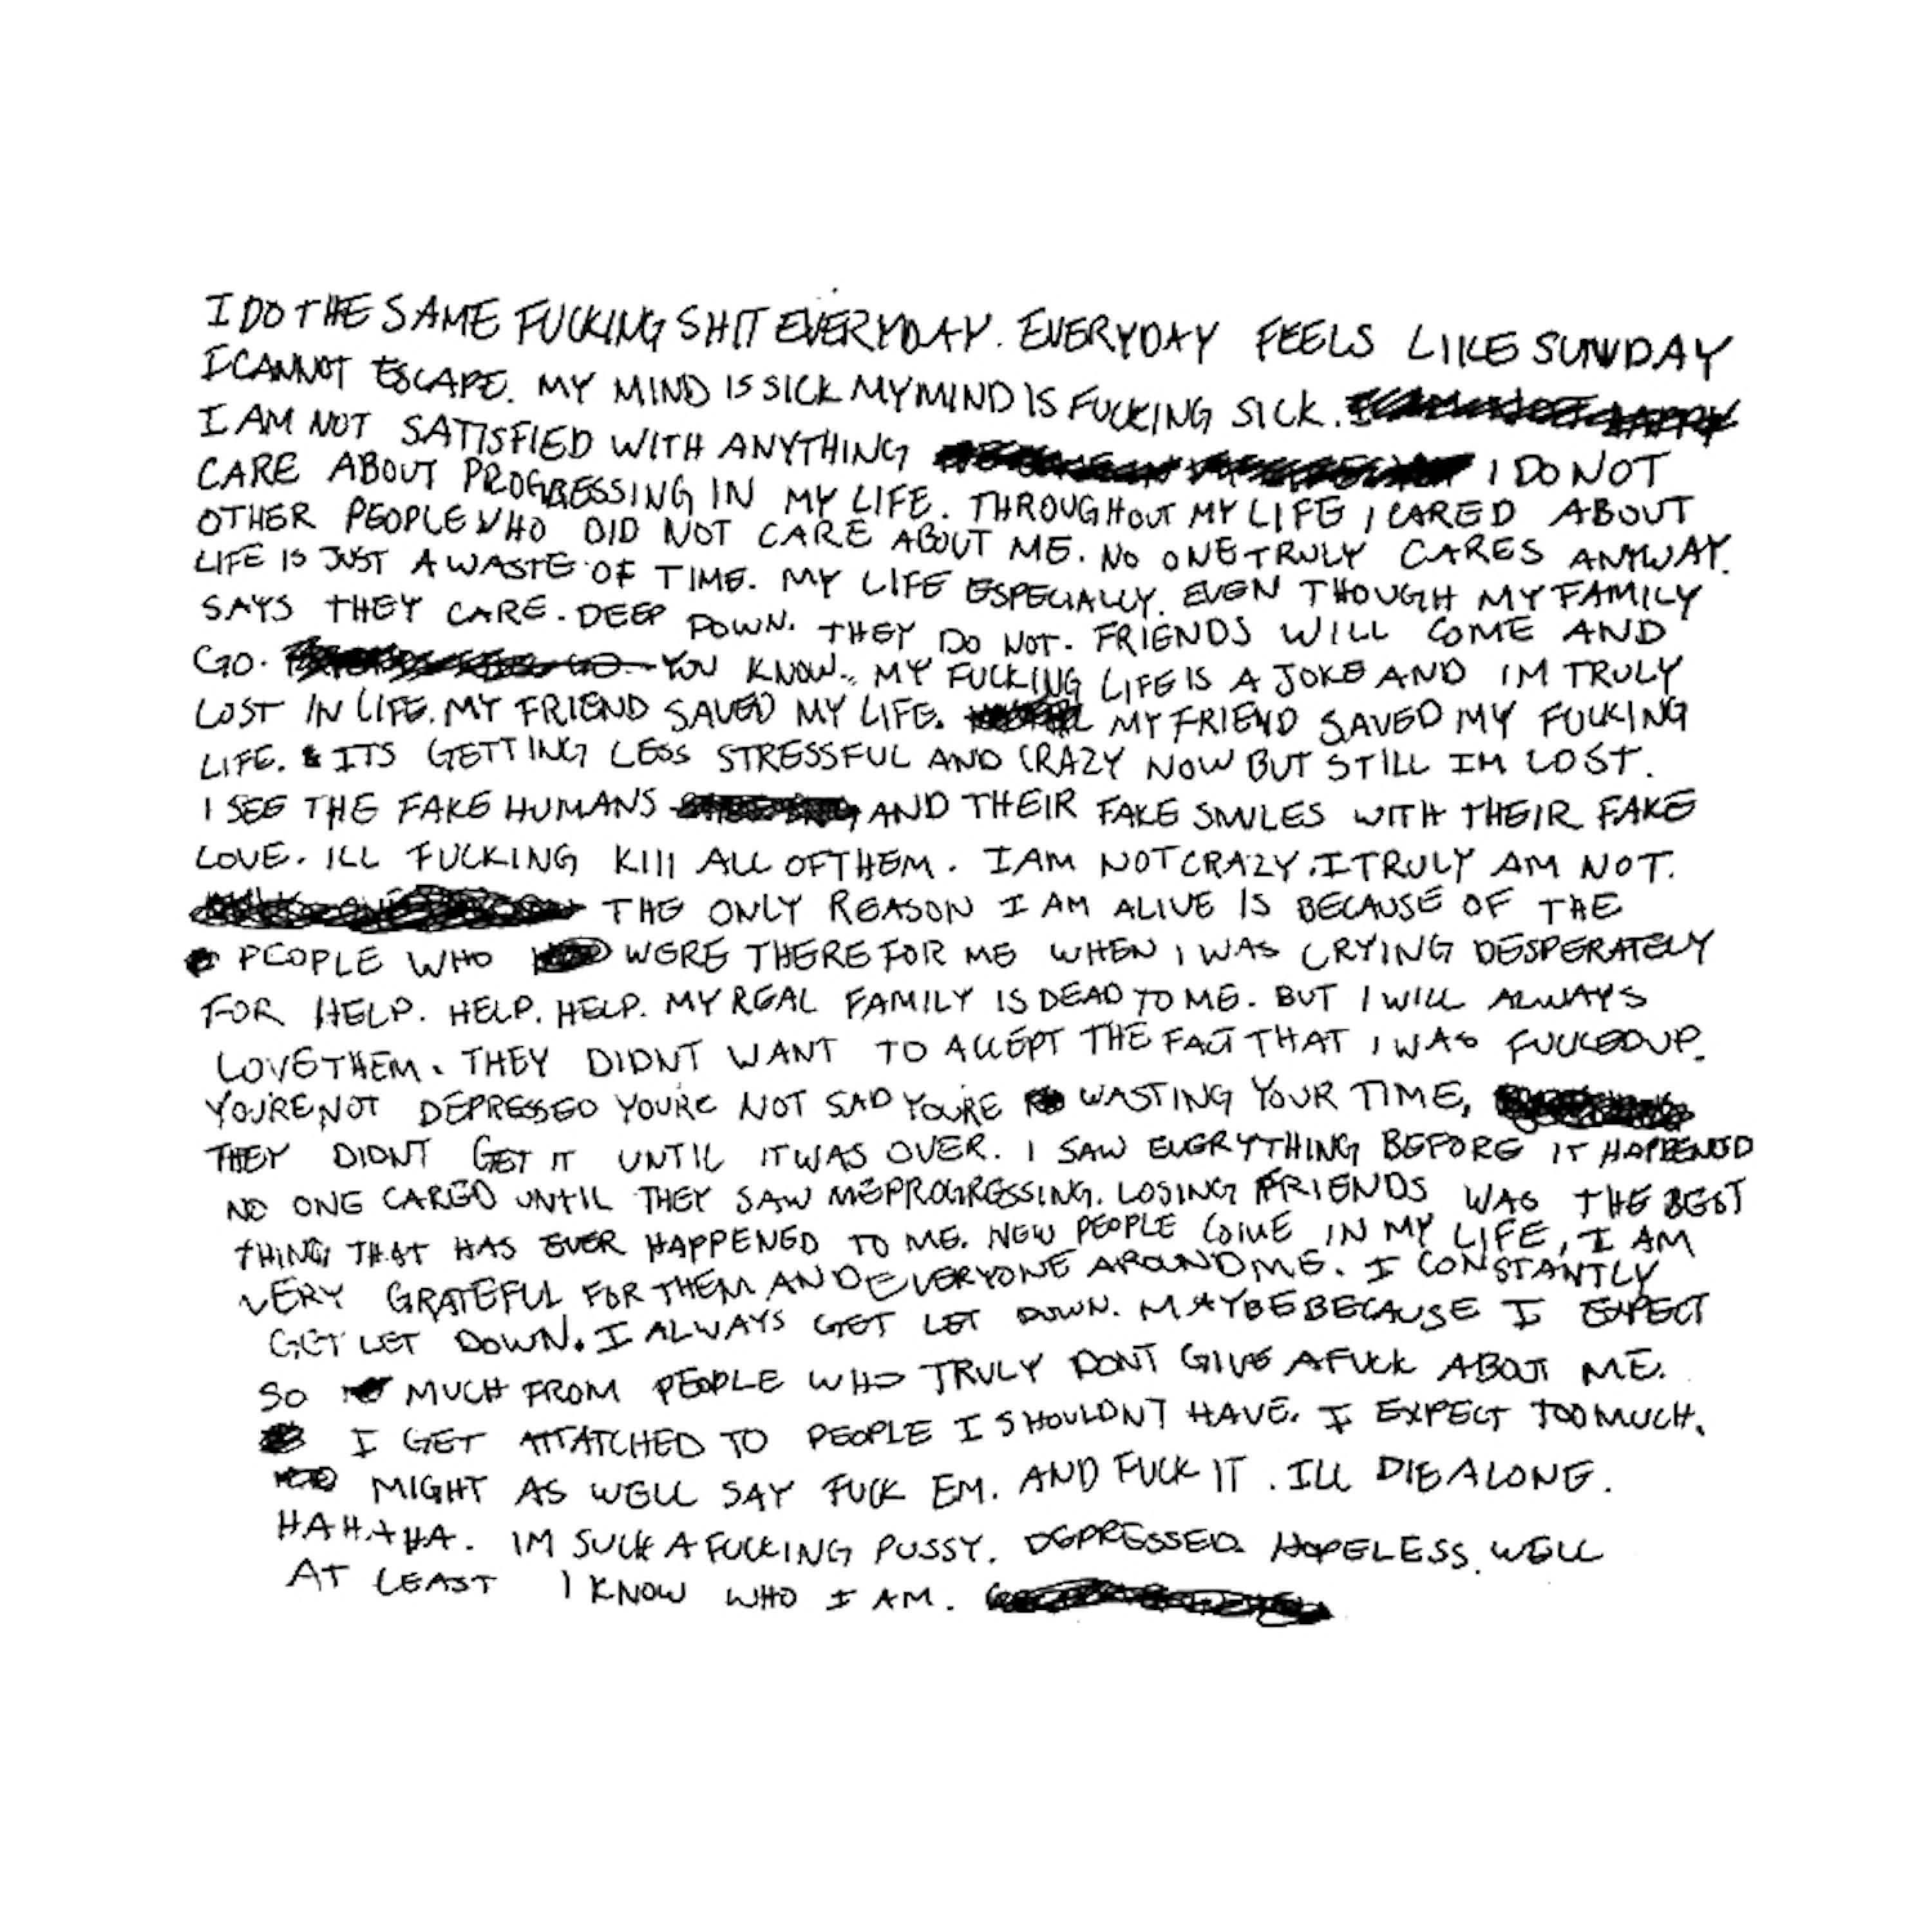 I DO THE SAME FUCKING SHIT EVERYDAY. EVERYDAY FEELS LIKE SUNDAY
I CANNOT ESCAPE. MY MIND IS SICK MY MIND IS FUCKING SICK.
I AM NOT SATISFIED WITH ANYTHING I DO NOT
CARE ABOUT PROGRESSING IN MY LIFE. THROUGHOUT MY LIFE I CARED ABOUT
OTHER PEOPLE WHO DID NOT CARE ABOUT ME. NO ONE TRULY CARES ANYWAY.
LIFE IS JUST A WASTE OF TIME. MY LIFE ESPECIALLY. EVEN THOUGH MY FAMILY
SAYS THEY CARE. DEEP DOWN. THEY DO NOT. FRIENDS WILL COME AND
GO. YOU KNOW.. MY FUCKING LIFE IS A JOKE AND IM TRULY
LOST IN LIFE. MY FRIEND SAVED MY LIFE. MY FRIEND SAVED MY FUCKING
LIFE. & ITS GETTING LESS STRESSFUL AND CRAZY NOW BUT STILL IM LOST.
I SEE THE FAKE HUMANS AND THEIR FAKE SMILES WITH THEIR FAKE
LOVE. ILL FUCKING KIll ALL OF THEM. I AM NOT CRAZY. I TRULY AM NOT.
THE ONLY REASON I AM ALIVE IS BECAUSE OF THE
PEOPLE WHO WERE THERE FOR ME WHEN I WAS CRYING DESPERATELY
FOR HELP. HELP. HELP. MY REAL FAMILY IS DEAD TO ME. BUT I WILL ALWAYS
LOVE THEM. THEY DIDNT WANT TO ACCEPT THE FACT THAT I WAS FUCKED UP.
YOU'RE NOT DEPRESSED YOU'RE NOT SAD YOU'RE WASTING YOUR TIME,
THEY DIDNT GET IT UNTIL IT WAS OVER. I SAW EVERYTHING BEFORE IT HAPPENED
NO ONE CARED UNTIL THEY SAW ME PROGRESSING. LOSING FRIENDS WAS THE BEST
THING THAT HAS EVER HAPPENED TO ME. NEW PEOPLE COME IN MY LIFE, I AM
VERY GRATEFUL FOR THEM AND EVERYONE AROUND ME. I CONSTANTLY
GET LET DOWN. I ALWAYS GET LET DOWN. MAYBE BECAUSE I EXPECT
SO MUCH FROM PEOPLE WHO TRULY DONT GIVE A FUCK ABOUT ME.
I GET ATTATCHED TO PEOPLE I SHOULDNT HAVE. I EXPECT TOO MUCH.
MIGHT AS WELL SAY FUCK EM. AND FUCK IT. ILL DIE ALONE.
HAHAHA. IM SUCH A FUCKING PUSSY. DEPRESSED. HOPELESS. WELL
AT LEAST I KNOW WHO I AM.